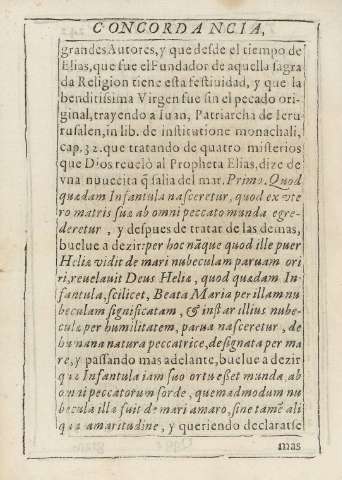 CONCORDANCIA,
grandes Autores, y que desde el tiempo de
Elias, que fue el Fundador de aquella sagra
da Religion tiene esta festiuidad, y que la
benditissima Virgen fue sin el pecado ori-
ginal, trayendo a Iuan, Patriarcha de Ieru
rusalen, in lib. de institutione monachali,
cap. 32. que tratando de quatro misterios
que Dios reuelò al Propheta Elias, dize de
vna nuuecita q̃ salia del mar. Primo. Quod
quædam Infantula nasceretur, quod ex vte
ro matris suæ ab omni peccato munda egre-
deretur, y despues de tratar de las demas,
buelue a dezir: per hoc nãque quod ille puer
Heliæ vidit de mari nubeculam paruam ori
ri, reuelauit Deus Heliæ, quod quædam In-
fantula, scilicet, Beata Maria per illam nu
beculam significatam, & instar illius nube-
culæ per humilitatem, parua nasceretur, de
humana natura peccatrice, designata per ma
re, y passando mas adelante, buelue a dezir
quæ Infantula iam suo ortu eßet munda, ab
omni peccatorum sorde, quemadmodum nu
becula illa fuit de mari amaro, sine tamẽ ali
qua amaritudine, y queriendo declararse
mas